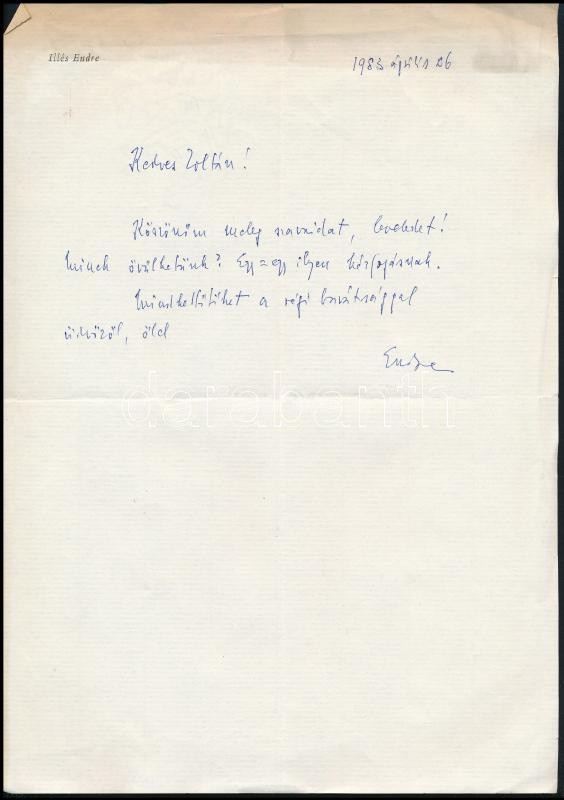 Illés Endre
1983 április 26
Kedves Zoltán!
Köszönöm meleg szavaidat, leveledet!
Minek örülhetünk? Egy=egy ilyen kézfogásnak.
Mindkettőtöket a régi barátsággal
üdvözöl, ölel
Endre
darabanth